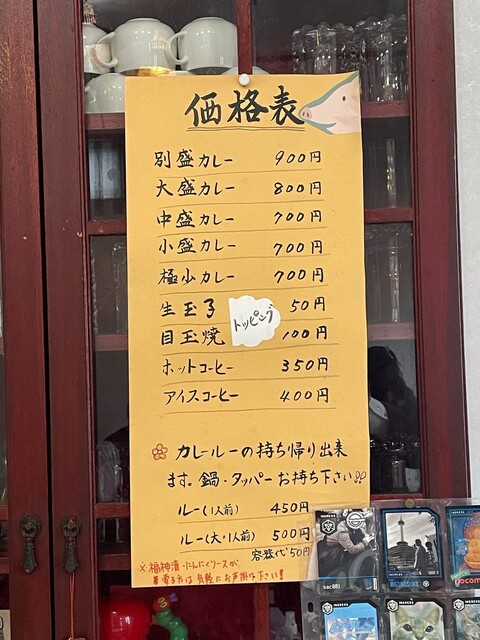 価格表
別盛カレー 900円
大盛カレー 800円
中盛カレー 700円
小盛カレー 700円
極小カレー 700円
生玉子 50円
トッピング
目玉焼 100円
ホットコーヒー 350円
アイスコーヒー 400円
カレールーの持ち帰り出来
ます。鍋・タッパーお持ち下さい
ルー(1人前) 450円
ルー(大・1人前) 500円
容器代50円
※福神漬・にんにくソースが
要る方は気軽にお声掛け下さい!